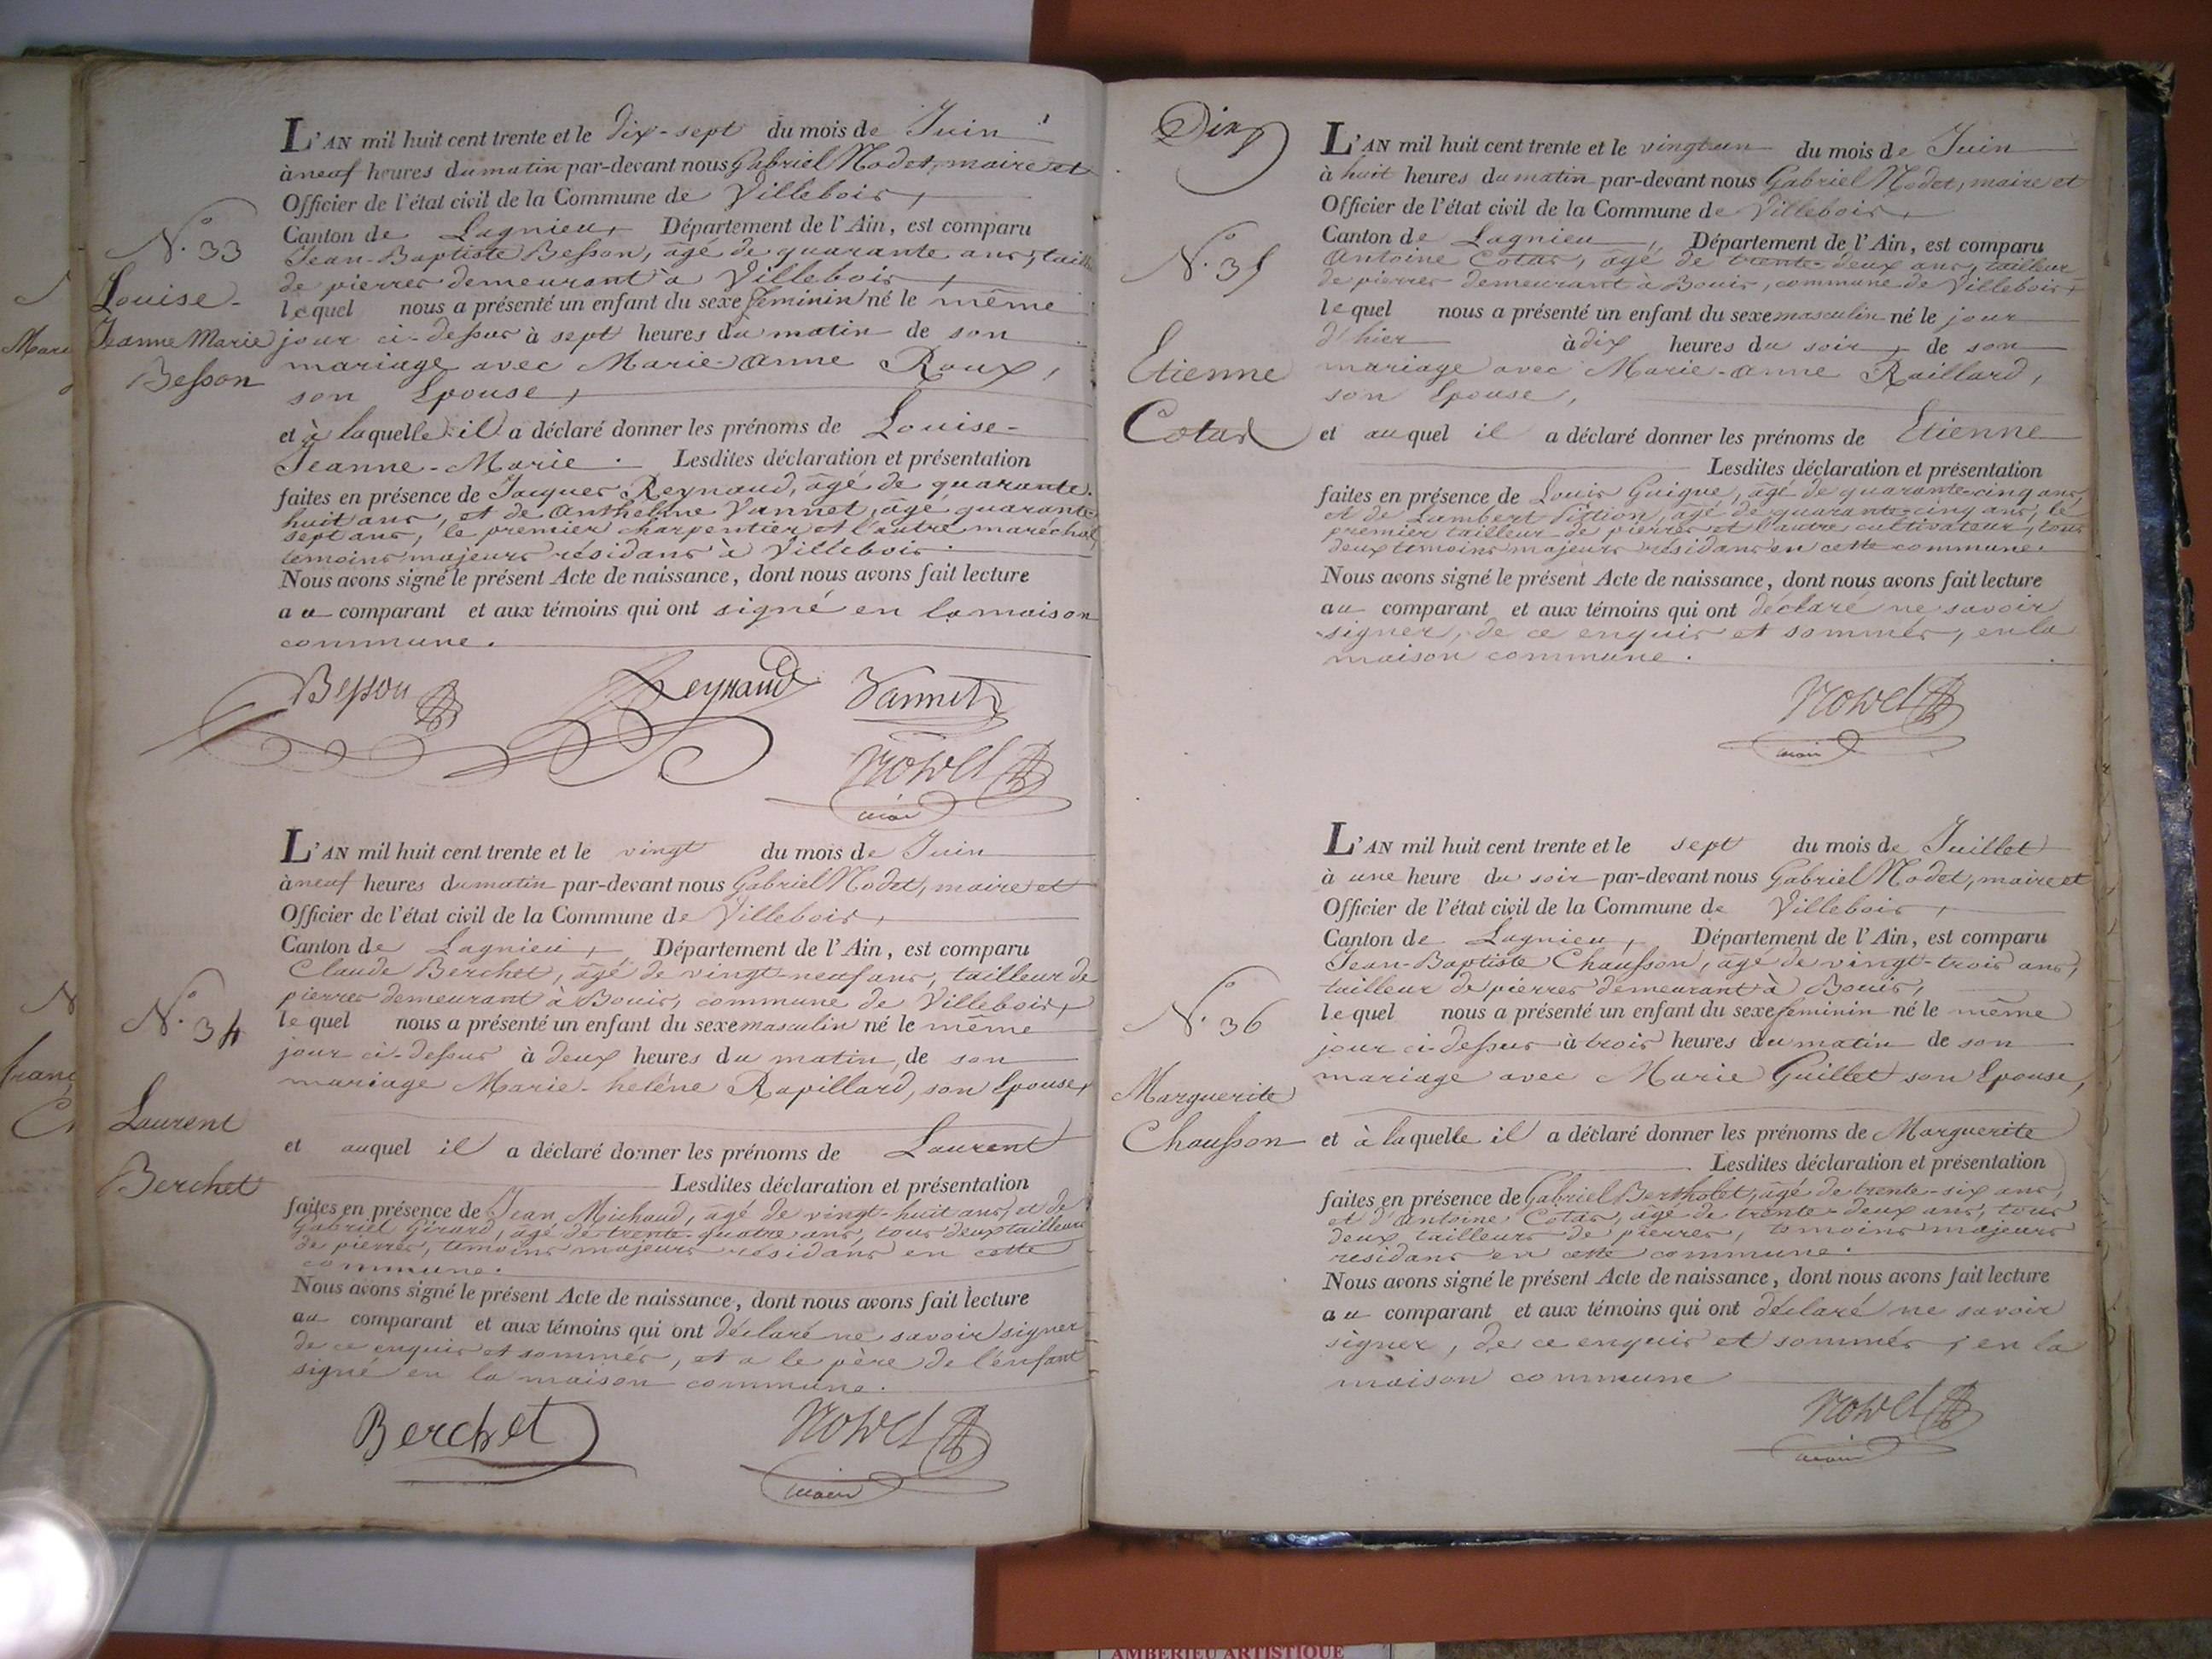 L'AN mil huit cent trente et le dix-sept du mois de Juin
à neuf heures du matin par-devant nous Gabriel Nodet, maire et
Officier de l'état civil de la Commune de Villebois,
Canton de Lagnieu, Département de l'Ain, est comparu
N.° 33
Jean-Baptiste Besson, âgé de quarante ans, taill
de pierres demeurant à Villebois,
Louise-
lequel nous a présenté un enfant du sexe feminin né le même
Jeanne Marie
jour ci-dessus à sept heures du matin de son
Besson
mariage avec Marie-anne Roux,
son Epouse,
et à laquelle il a déclaré donner les prénoms de Louise-
Jeanne-Marie. Lesdites déclaration et présentation
faites en présence de Jacques Reynaud, âgé de quarante-
huit ans, et de Anthelme Vannet, âgé quarante-
sept ans, le premier charpentier et l'autre maréchal,
temoins majeurs résidans à Villebois.
Nous avons signé le présent Acte de naissance, dont nous avons fait lecture
au comparant et aux témoins qui ont signé en la maison
commune.
Besson Reynaud Vannet
Nodet
maire
L'AN mil huit cent trente et le vingt du mois de Juin
à neuf heures du matin par-devant nous Gabriel Nodet, maire et
Officier de l'état civil de la Commune de Villebois,
Canton de Lagnieu, Département de l'Ain, est comparu
Claude Berchet, âgé de vingt-neuf ans, tailleur de
pierres demeurant à Bouis, commune de Villebois,
N.° 34
lequel nous a présenté un enfant du sexe masculin né le même
jour ci-dessus à deux heures du matin, de son
mariage Marie-heléne Rapillard, son Epouse,
Laurent
et auquel il a déclaré donner les prénoms de Laurent
Berchet
Lesdites déclaration et présentation
faites en présence de Jean Michaud, âgé de vingt-huit ans, et de
Gabriel Girard, âgé de trente-quatre ans, tous deux tailleurs
de pierres, temoins majeurs résidans en cette
commune.
Nous avons signé le présent Acte de naissance, dont nous avons fait lecture
au comparant et aux témoins qui ont déclaré ne savoir signer
de ce enquis et sommés, et a le père de l'enfant
signé en la maison commune.
Berchet Nodet
maire
Dix
L'AN mil huit cent trente et le vingt un du mois de Juin
à huit heures du matin par-devant nous Gabriel Nodet, maire et
Officier de l'état civil de la Commune de Villebois,
Canton de Lagnieu, Département de l'Ain, est comparu
N.° 35
Antoine Cotas, âgé de trente-deux ans, tailleur
de pierres demeurant à Bouis, commune de Villebois,
lequel nous a présenté un enfant du sexe masculin né le jour
d'hier à dix heures du soir, de son
Etienne
mariage avec Marie-anne Raillard,
son Epouse,
Cotas
et auquel il a déclaré donner les prénoms de Etienne
Lesdites déclaration et présentation
faites en présence de Louis Guigue, âgé de quarante-cinq ans,
et de Lambert, âgé de quarante-cinq ans, le
premier tailleur de pierres et l'autre cultivateur, tous
deux temoins majeurs résidans en cette commune.
Nous avons signé le présent Acte de naissance, dont nous avons fait lecture
au comparant et aux témoins qui ont déclaré ne savoir
signer, de ce enquis et sommés, en la
maison commune.
Nodet
maire
L'AN mil huit cent trente et le sept du mois de Juillet
à une heure du soir par-devant nous Gabriel Nodet, maire et
Officier de l'état civil de la Commune de Villebois,
Canton de Lagnieu, Département de l'Ain, est comparu
Jean-Baptiste Chausson, âgé de vingt-trois ans,
tailleur de pierres demeurant à Bouis,
N.° 36
lequel nous a présenté un enfant du sexe feminin né le même
jour ci-dessus à trois heures du matin de son
mariage avec Marie Guillet son Epouse,
Marguerite
Chausson
et à laquelle il a déclaré donner les prénoms de Marguerite
Lesdites déclaration et présentation
faites en présence de Gabriel Bertholet, âgé de trente-six ans,
et d'Antoine Cotas, âgé de trente-deux ans, tous
deux tailleurs de pierres, temoins majeurs
residans en cette commune.
Nous avons signé le présent Acte de naissance, dont nous avons fait lecture
au comparant et aux témoins qui ont déclaré ne savoir
signer, de ce enquis et sommés, en la
maison commune
Nodet
maire
AMBERIEU ARTISTIQUE